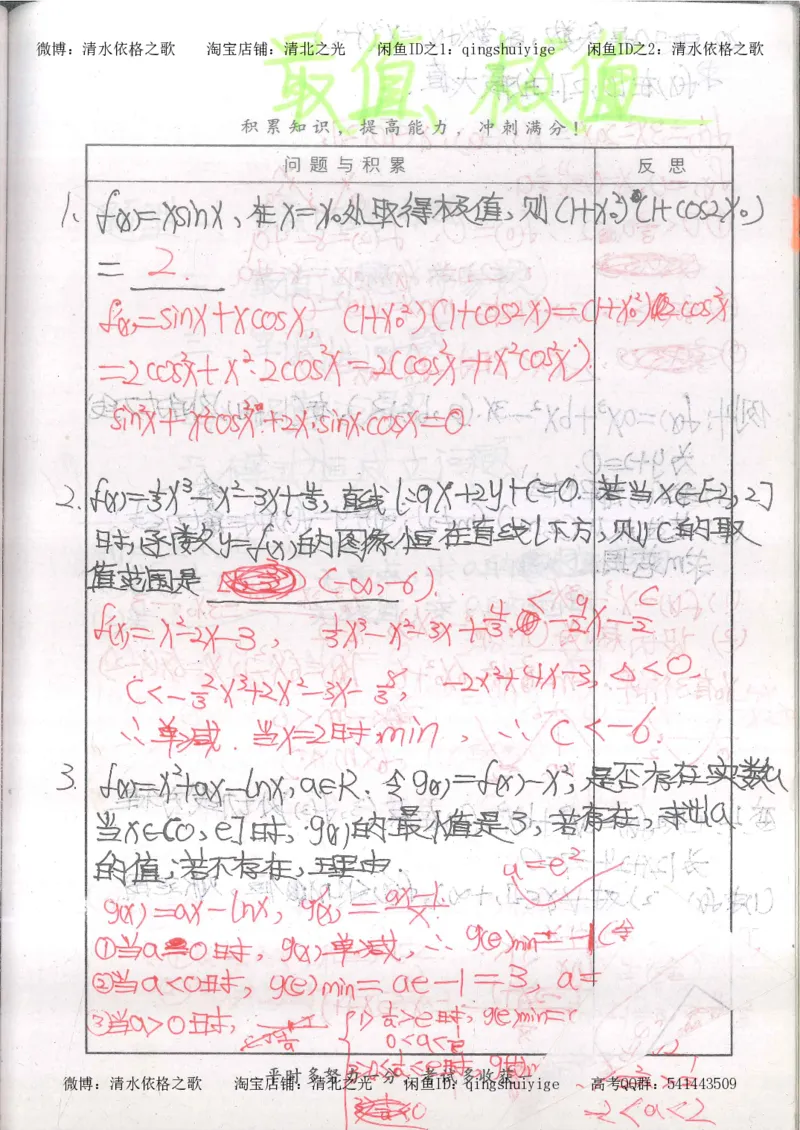 微博：清水依格之歌 淘宝店铺：清北之光 闲鱼ID之1：qingshuiyige 闲鱼ID之2：清水依格之歌
最值、极值
积累知识，提高能力，冲刺满分！
问题与积累 反思
1. f(x)=xsinx，在x=x₀处取得极值，则(1+x₀²)(1+cos2x₀)
= 2.
f'(x)=sinx+xcosx, (1+x₀²)(1+cos2x)=(1+x₀²)2cos²x
=2cos²x+x²·2cos²x=2(cos²x+x²cos²x).
sin²x+x²cos²x+2x·sinx·cosx=0
2. f(x)=⅓x³-x²-3x+4/3，直线l:9x+2y+c=0. 若当x∈[-2,2]
时，函数y=f(x)的图像恒在直线l下方，则c的取
值范围是 (-∞,-6).
f'(x)=x²-2x-3, ⅓x³-x²-3x+4/3<-9/2x-c/2
c<-2/3x³+2x²-3x-8/3, -2x²+4x-3, Δ<0.
∴单减. 当x=2时min, ∴c<-6.
3. f(x)=x²+ax-lnx, a∈R. 令g(x)=f(x)-x²，是否存在实数a
当x∈(0,e]时，g(x)的最小值是3，若存在，求出a
的值；若不存在，理由. a=e²
g(x)=ax-lnx, g'(x)=ax-1/x
①当a=0时，g(x)单减，∴g(e)min=-1(舍
②当a<0时，g(e)min=ae-1=3, a=
③当a>0时， 1) 1/a>e时，g(e)min=
0<a<
平时多努力一分，考试多收获一
微博：清水依格之歌 淘宝店铺：清北之光 闲鱼ID：qingshuiyige 高考QQ群：541443509
-2<a<2